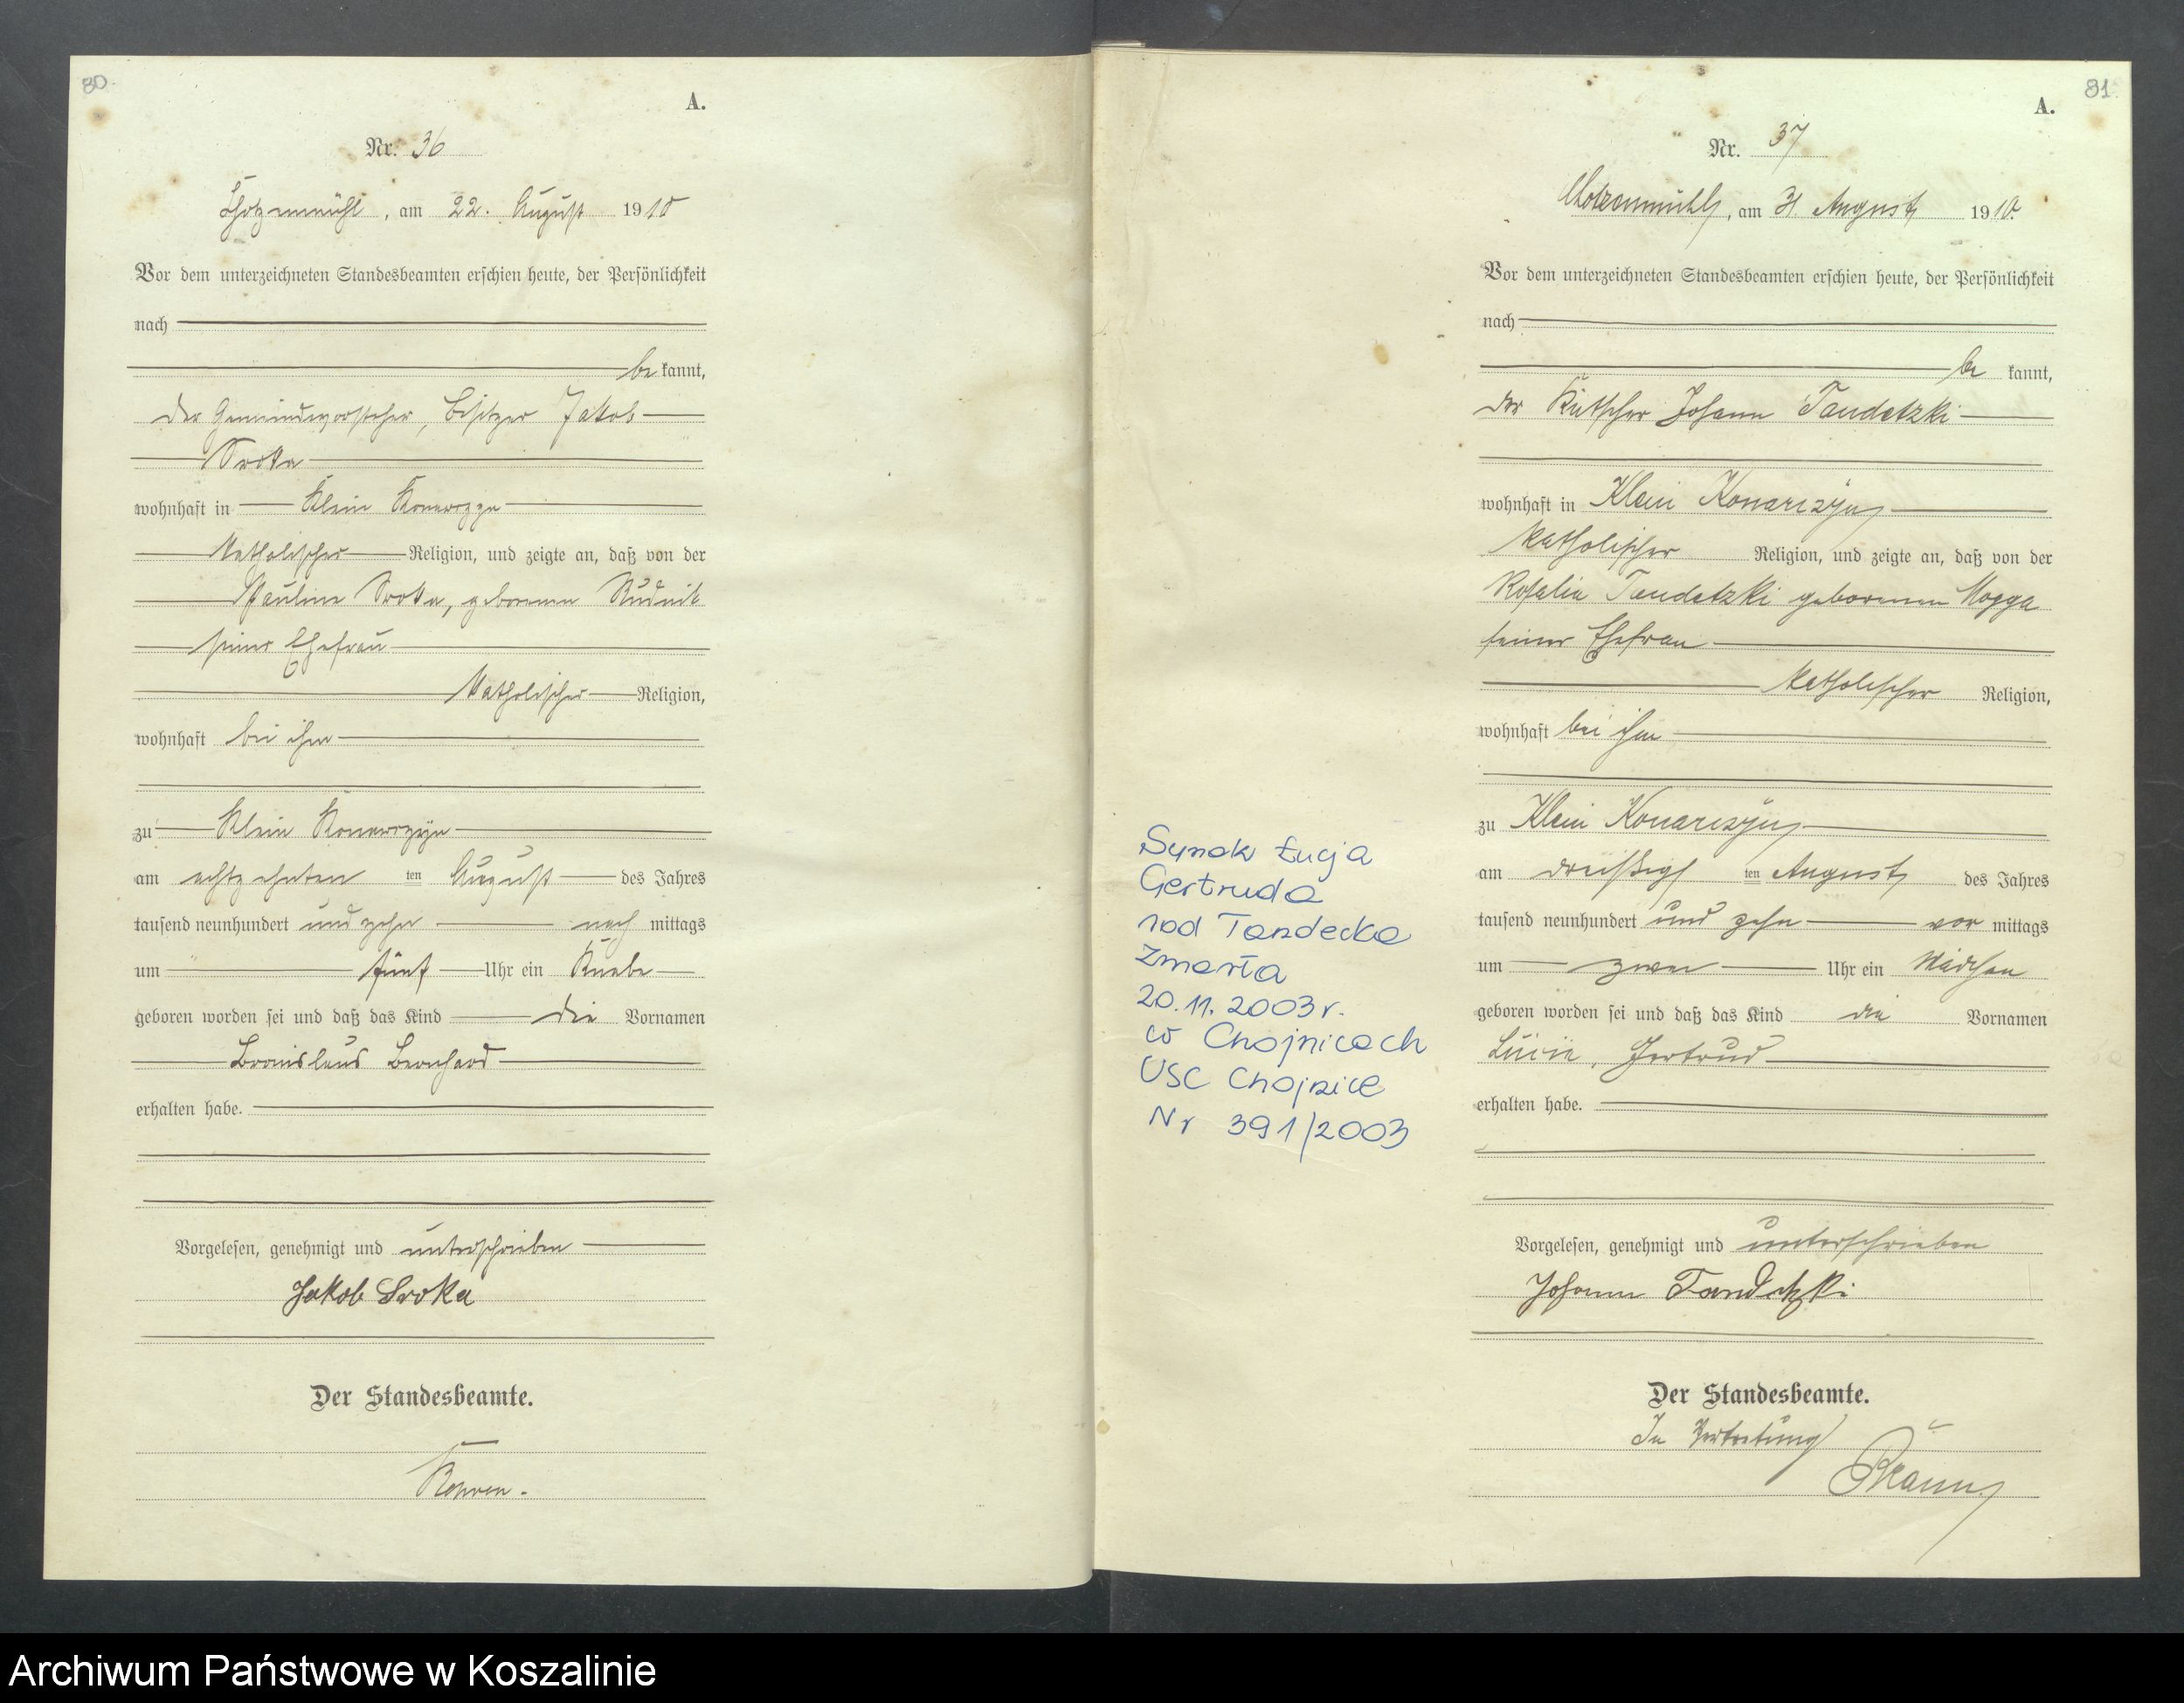 80.
A.
Nr. 36
Chotzenmühl, am 22. August 1910
Vor dem unterzeichneten Standesbeamten erschien heute, der Persönlichkeit
nach
be kannt,
der Gemeindevorsteher, Besitzer Jakob
Sroka
wohnhaft in Klein Konarczyn
katholischer Religion, und zeigte an, daß von der
Pauline Sroka, geborenen Rudnik
seiner Ehefrau
katholischer Religion,
wohnhaft bei ihm
zu Klein Konarczyn
am achtzehnten ten August des Jahres
tausend neunhundert und zehn nach mittags
um fünf Uhr ein Knabe
geboren worden sei und daß das Kind die Vornamen
Bronislaus Bernhard
erhalten habe.
Vorgelesen, genehmigt und unterschrieben
Jakob Sroka
Der Standesbeamte.
81.
A.
Nr. 37
Chotzenmühl, am 31 August 1910.
Vor dem unterzeichneten Standesbeamten erschien heute, der Persönlichkeit
nach
be kannt,
der Kutscher Johann Tandetzki
wohnhaft in Klein Konarczyn
katholischer Religion, und zeigte an, daß von der
Rosalia Tandetzki geborenen Mogga
seiner Ehefrau
katholischer Religion,
wohnhaft bei ihm
zu Klein Konarczyn
am dreißigs ten August des Jahres
tausend neunhundert und zehn vor mittags
um zwei Uhr ein Mädchen
geboren worden sei und daß das Kind die Vornamen
Lucia, Gertrud
erhalten habe.
Vorgelesen, genehmigt und unterschrieben
Johann Tandetzki
Der Standesbeamte.
In Vertretung
Synak Łucja
Gertruda
rod Tandecka
zmarła
20.11.2003r.
w Chojnicach
USC Chojnice
Nr 391/2003
Archiwum Państwowe w Koszalinie